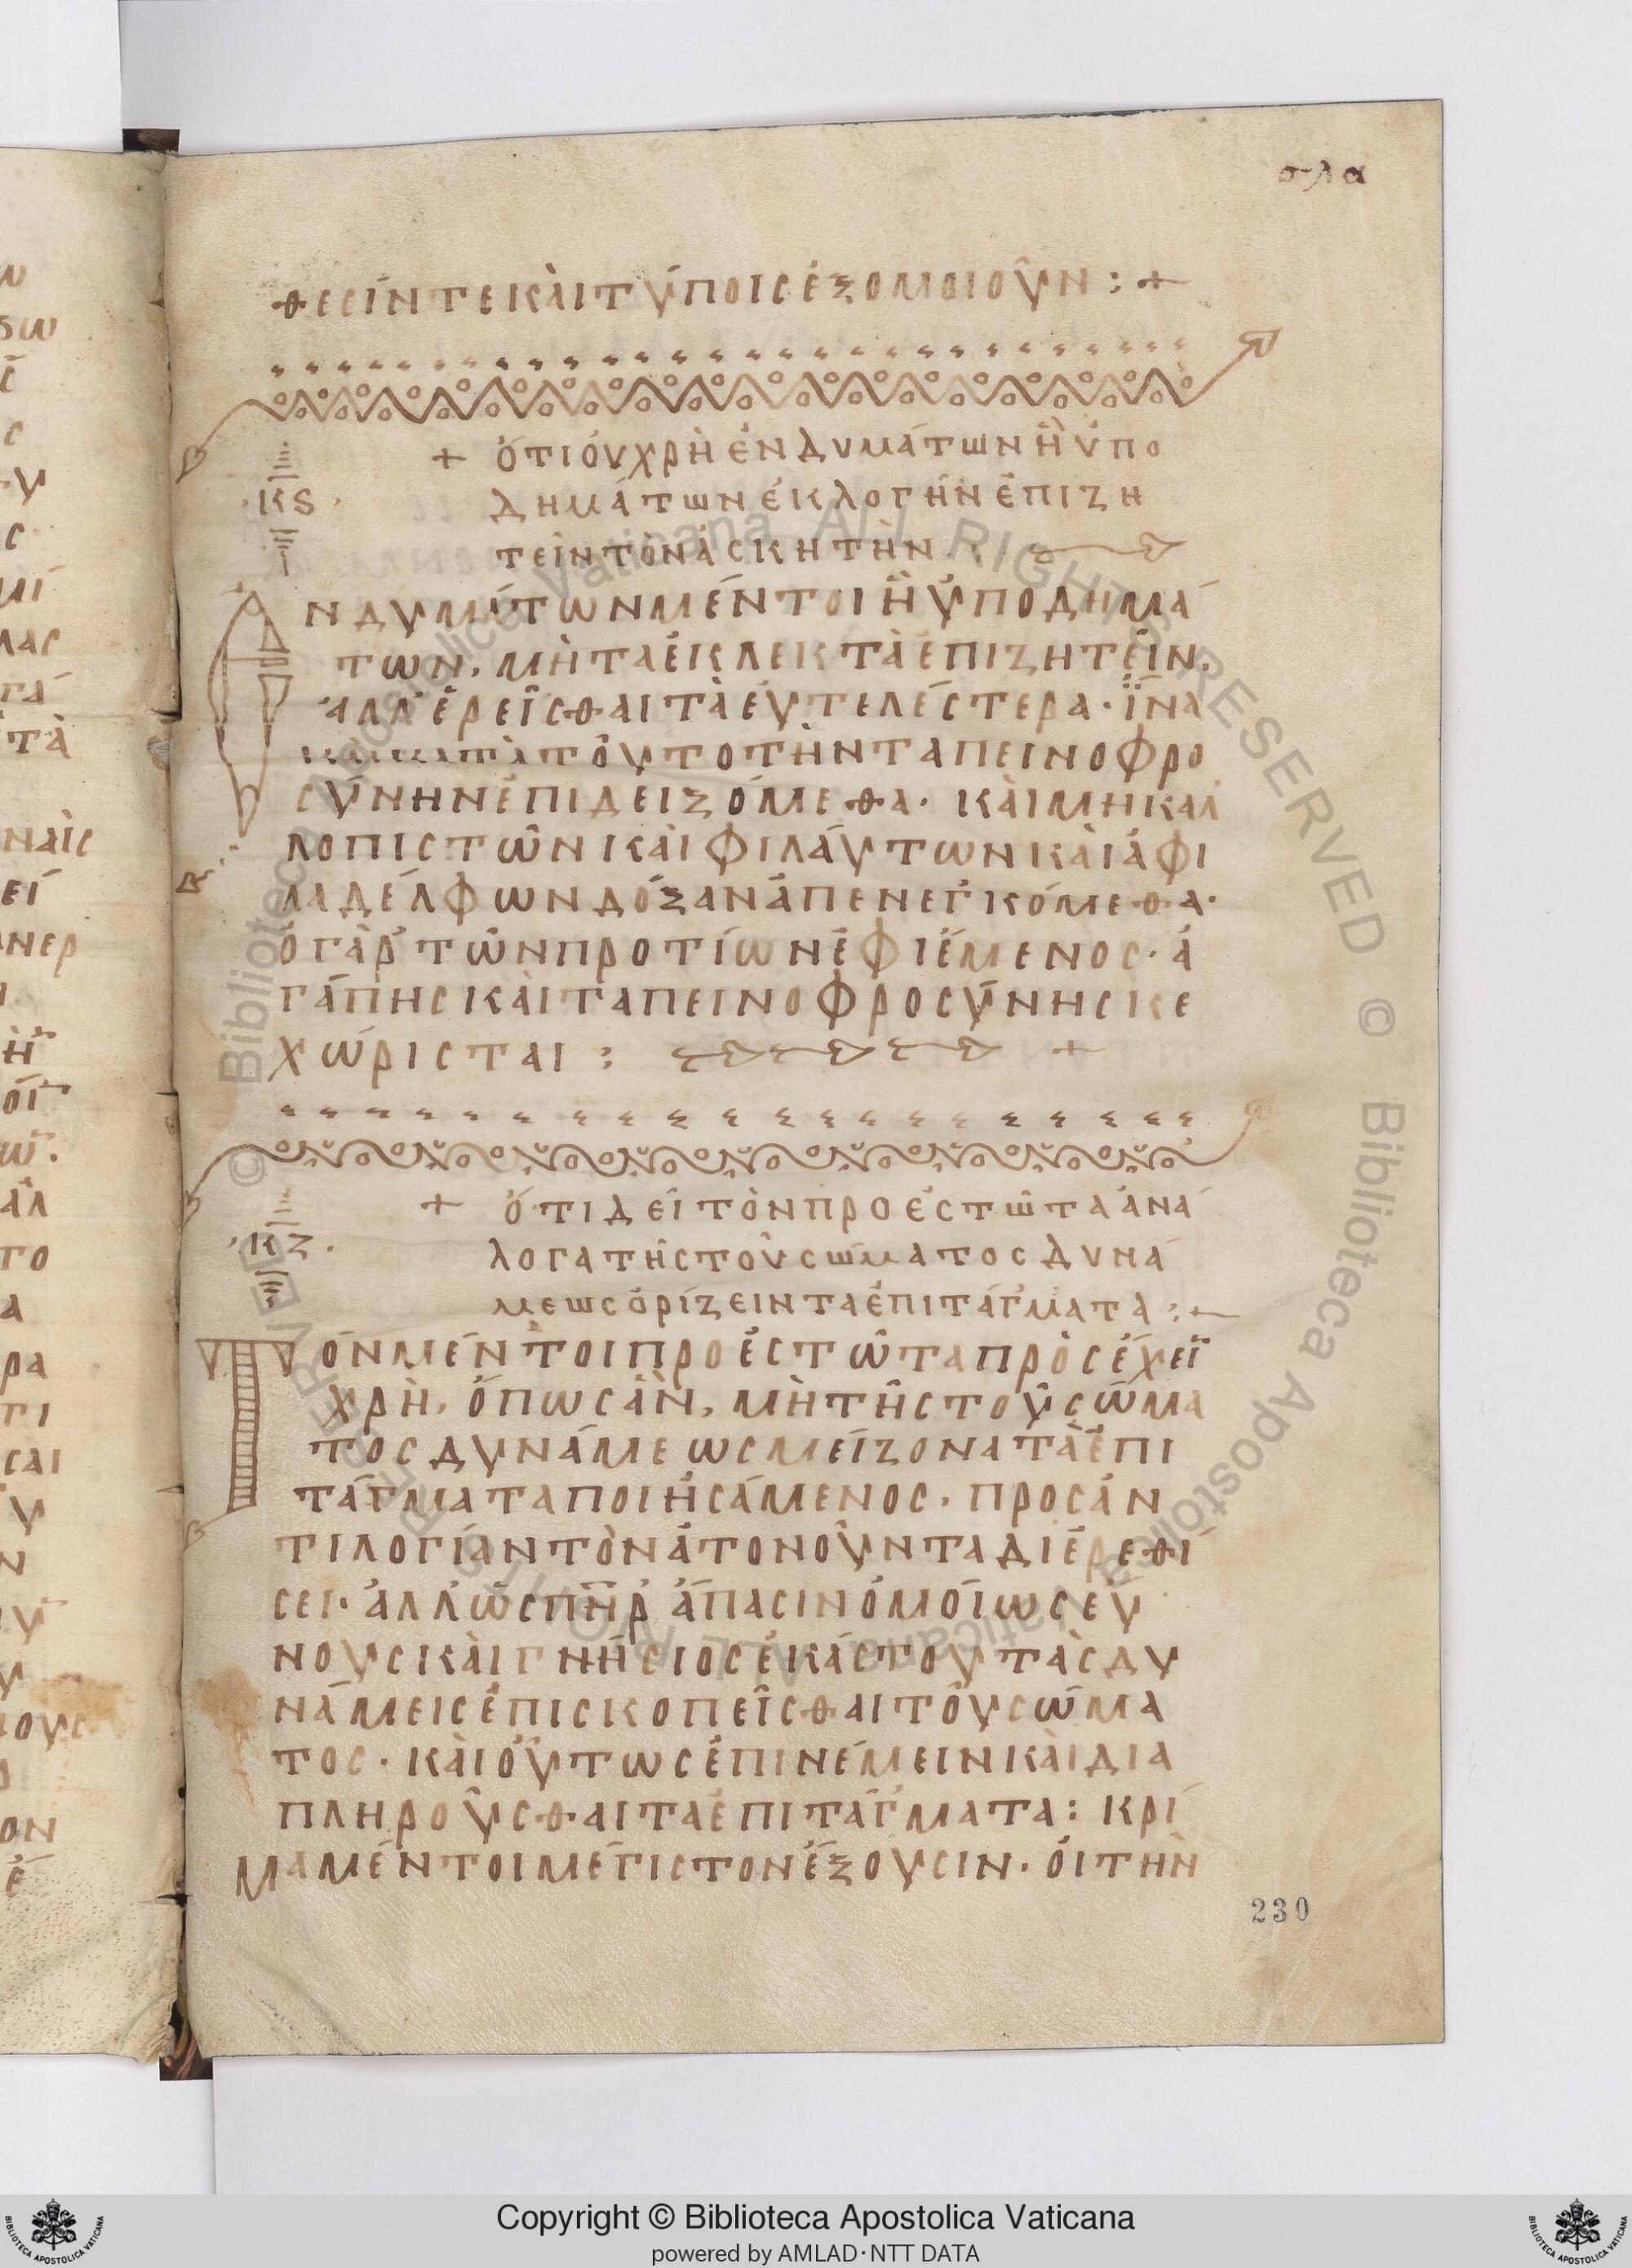 σλα
θεσίν τε καὶ τύποις ἐξομοιοῦν : +
+ ὅτι οὐ χρὴ ἐνδυμάτων ἢ ὑπο
·κϛ· δημάτων ἐκλογὴν ἐπιζη
τεῖν τὸν ἀσκητὴν :
Ἐνδυμάτων μέντοι ἢ ὑποδημά
των, μὴ τὰ ἐκλεκτὰ ἐπιζητεῖν,
ἀλλ' ἐρεῖσθαι τὰ εὐτελέστερα· ἵνα
κἀν κατὰ τοῦτο τὴν ταπεινοφρο
σύνην ἐπιδειξόμεθα· καὶ μὴ καλ
λοπιστῶν καὶ φιλαύτων καὶ ἀφι
λαδέλφων δόξαν ἀπενεγκόμεθα·
ὁ γὰρ τῶν προτίων ἐφιέμενος· ἀ
γάπης καὶ ταπεινοφροσύνης κε
χώρισται :  +
+ ὅτι δεῖ τὸν προεστῶτα ἀνά
·κζ· λογα τῆς τοῦ σώματος δυνά
μεως ὁρίζειν τὰ ἐπιτάγματα :
Τὸν μέντοι προεστῶτα προσέχειν
χρὴ, ὅπως ἂν, μὴ τῆς τοῦ σώμα
τος δυνάμεως μείζονα τὰ ἐπι
τάγματα ποιησάμενος, πρὸς ἀν
τιλογίαν τὸν ἀτονοῦντα διερεθί
σει· ἀλλ' ὥσπηρ ἅπασιν ὁμοίως εὔ
νους καὶ γνήσιος ἑκάστου τὰς δυ
νάμεις ἐπισκοπεῖσθαι τοῦ σώμα
τος· καὶ οὕτως ἐπινέμειν καὶ δια
πληροῦσθαι τὰ ἐπιτάγματα : κρί
μα μέντοι μέγιστον ἕξουσιν· οἱ τὴν
230
Copyright © Biblioteca Apostolica Vaticana
powered by AMLAD·NTT DATA